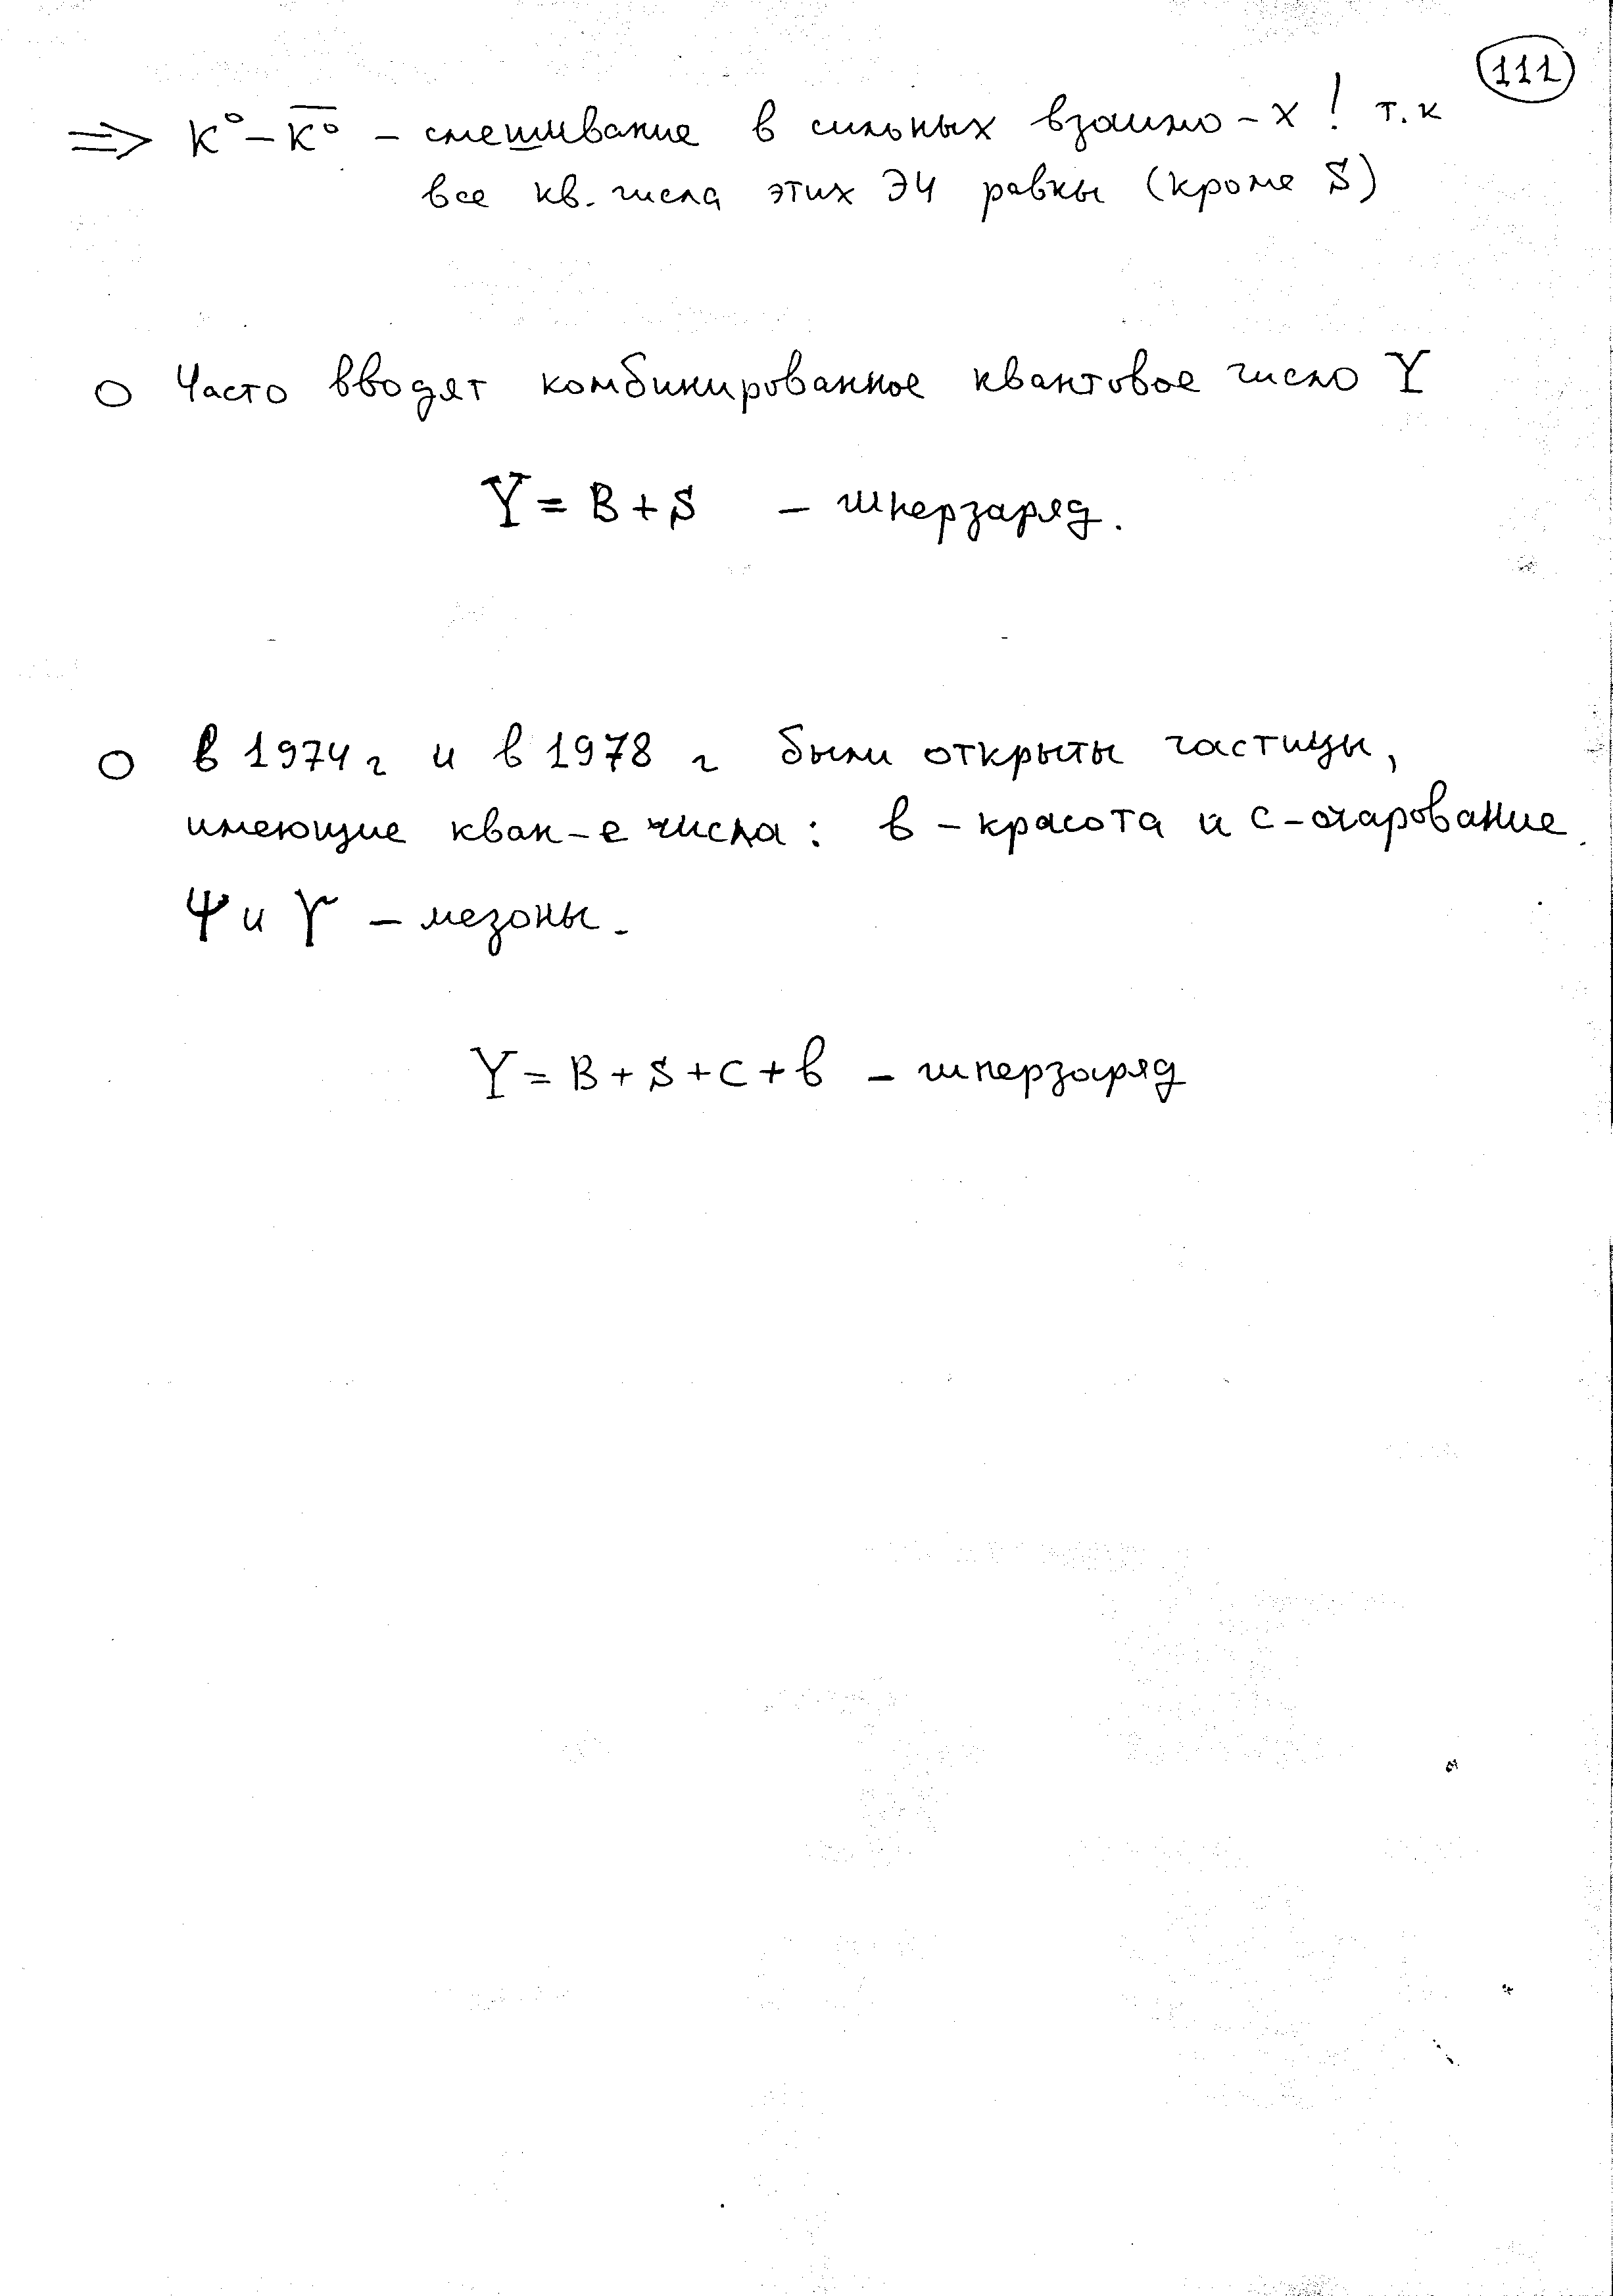 111
⇒ K⁰ – K̅⁰ – смешивание в сильных взаимо-х! т.к
все кв. числа этих ЭЧ равны (кроме S)
○ Часто вводят комбинированное квантовое число Y
Y = B + S – гиперзаряд.
○ в 1974 г и в 1978 г были открыты частицы,
имеющие кван-е числа: в – красота и с – очарование.
Ψ и ϒ – мезоны.
Y = B + S + C + b – гиперзаряд